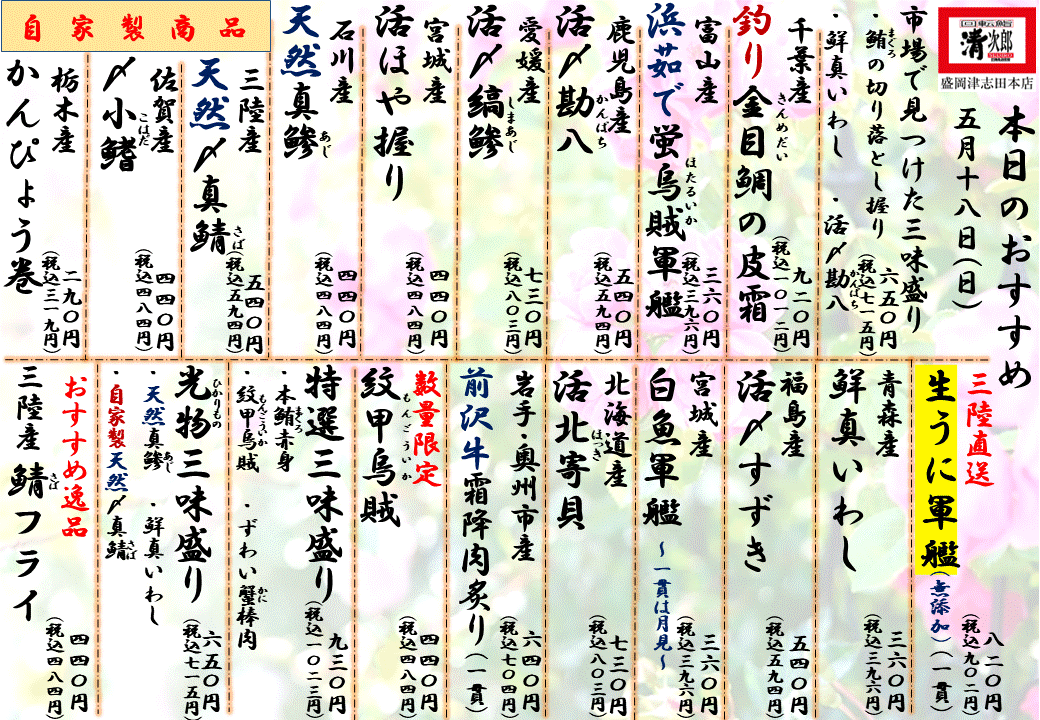 回転鮨
清次郎
盛岡津志田本店
本日のおすすめ
五月十八日(日)
市場で見つけた三味盛り
・鮪の切り落とし握り
まぐろ
・鮮真いわし ・活〆勘八
かんぱち
六五〇円
(税込七一五円)
千葉産
釣り金目鯛の皮霜
きんめだい
九二〇円
(税込一〇一二円)
富山産
浜茹で蛍烏賊軍艦
ほたるいか
三六〇円
(税込三九六円)
鹿児島産
活〆勘八
かんぱち
五四〇円
(税込五九四円)
愛媛産
活〆縞鯵
しまあじ
七三〇円
(税込八〇三円)
宮城産
活ほや握り
四四〇円
(税込四八四円)
石川産
天然真鯵
あじ
四四〇円
(税込四八四円)
自家製商品
三陸産
天然〆真鯖
さば
五四〇円
(税込五九四円)
佐賀産
〆小鰭
こはだ
四四〇円
(税込四八四円)
栃木産
かんぴょう巻
二九〇円
(税込三一九円)
三陸直送
生うに軍艦(無添加)(一貫)
八二〇円
(税込九〇二円)
青森産
鮮真いわし
三六〇円
(税込三九六円)
福島産
活〆すずき
五四〇円
(税込五九四円)
宮城産
白魚軍艦
~一貫は月見~
三六〇円
(税込三九六円)
北海道産
活北寄貝
ほっき
七三〇円
(税込八〇三円)
岩手・奥州市産
前沢牛霜降肉炙り(一貫)
六四〇円
(税込七〇四円)
数量限定
紋甲烏賊
もんごういか
四四〇円
(税込四八四円)
特選三味盛り
・本鮪赤身
まぐろ
・紋甲烏賊 ・ずわい蟹棒肉
もんごういか かに
九三〇円
(税込一〇二三円)
光物三味盛り
ひかりもの
・天然真鯵 ・鮮真いわし
あじ
・自家製天然〆真鯖
さば
六五〇円
(税込七一五円)
おすすめ逸品
三陸産 鯖フライ
さば
四四〇円
(税込四八四円)